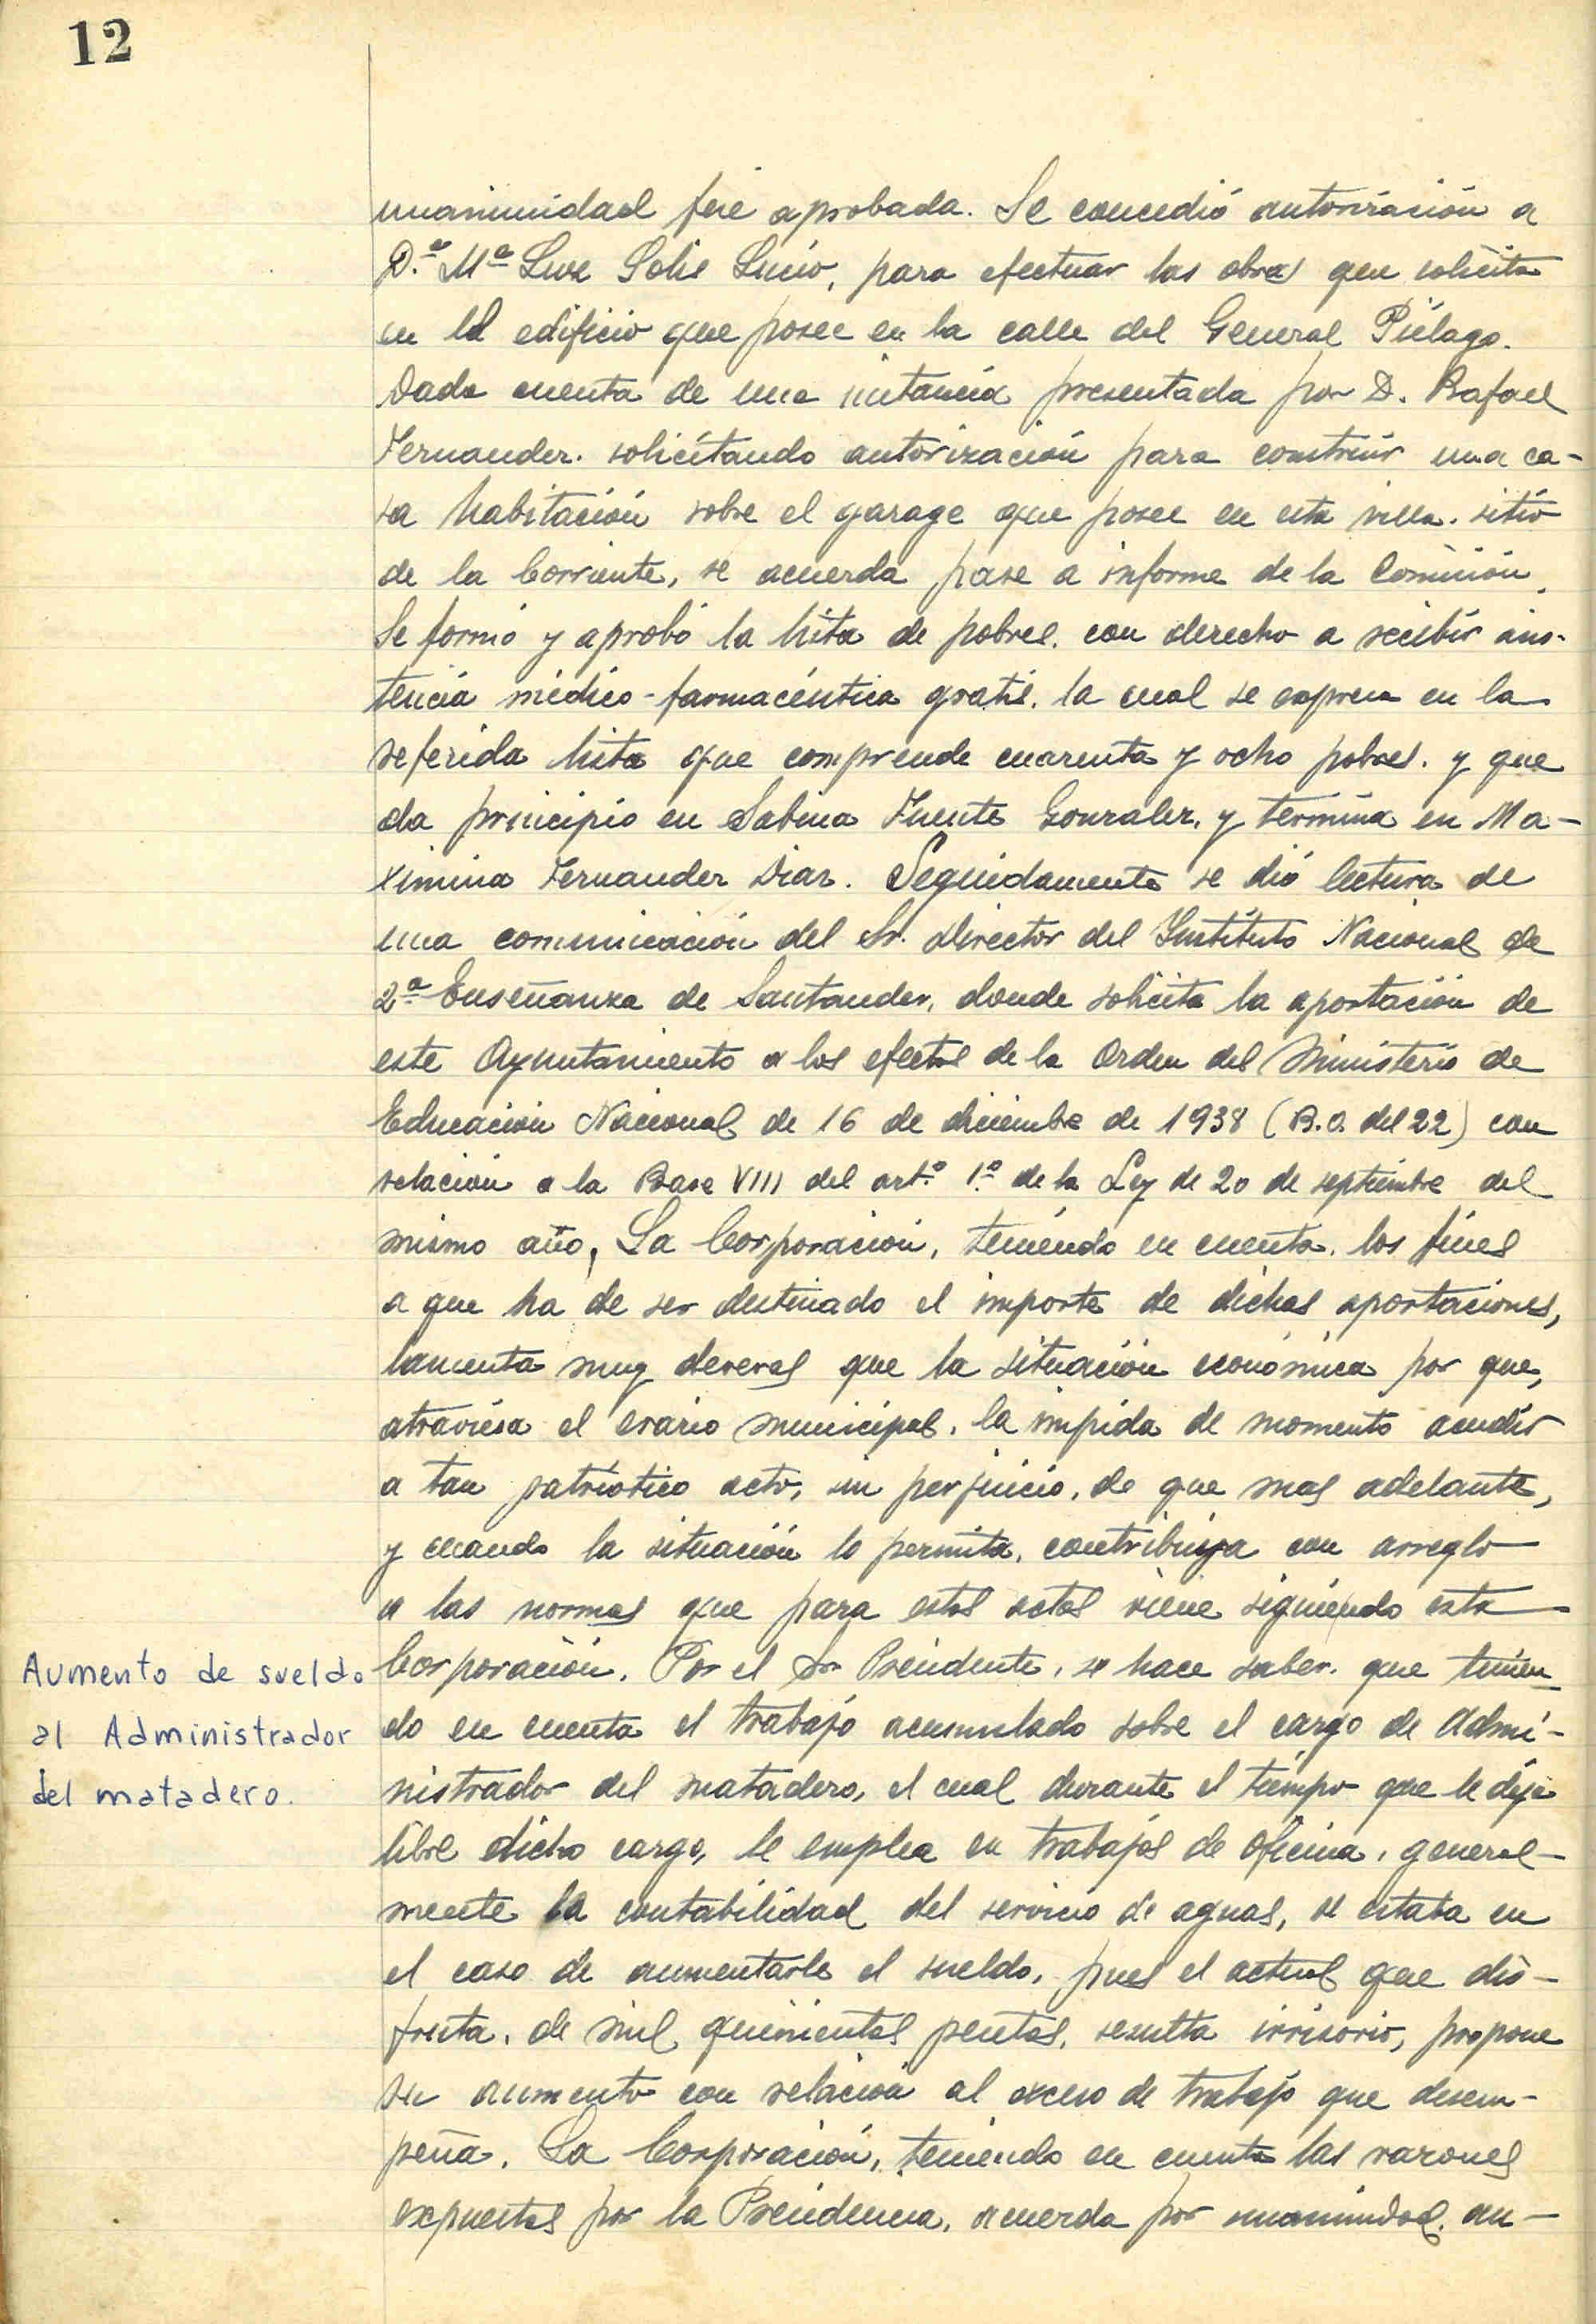 12
unanimidad fué aprobada. Se concedió autorización a
D.ª Mª Luz Solis Lucio, para efectuar las obras que solicita
en el edificio que posee en la calle del General Piélago.
Dada cuenta de una instancia presentada por D. Rafael
Fernandez. solicitando autorización para construir una ca-
sa habitación sobre el garage que posee en esta villa. sitio
de la Corriente, se acuerda pase a informe de la Comisión.
Se formó y aprobó la lista de pobres. con derecho a recibir asis-
tencia médico-farmacéutica gratis. la cual se expresa en la
referida lista que comprende cuarenta y ocho pobres. y que
da principio en Sabina Fuente Gonzalez, y termina en Ma-
ximina Fernandez Diaz. Seguidamente se dió lectura de
una comunicación del Sr. Director del Instituto Nacional de
2ª Enseñanza de Santander, donde solicita la aportación de
este Ayuntamiento a los efectos de la Orden del Ministerio de
Educación Nacional de 16 de diciembre de 1938 (B.O. del 22) con
relación a la Base VIII del artº. 1º. de la Ley de 20 de septiembre del
mismo año, La Corporación, teniendo en cuenta, los fines
a que ha de ser destinado el importe de dichas aportaciones,
lamenta muy deveras que la situación económica por que,
atraviesa el erario municipal, la impida de momento acudir
a tan patriótico acto, sin perjuicio, de que mas adelante,
y cuando la situación lo permita, contribuya con arreglo
a las normas que para estos actos viene siguiendo esta
Aumento de sueldo
al Administrador
del matadero.
Corporación. Por el Sr Presidente, se hace saber. que tenien-
do en cuenta el trabajo acumulado sobre el cargo de Admi-
nistrador del matadero, el cual durante el tiempo que le deja
libre dicho cargo, le emplea en trabajos de oficina, general-
mente la contabilidad del servicio de aguas, se estaba en
el caso de aumentarle el sueldo, pues el actual que dis-
fruta, de mil quinientas pesetas, resulta irrisorio, propone
su aumento con relación al exceso de trabajo que desem-
peña. La Corporación, teniendo en cuenta las razones
expuestas por la Presidencia, acuerda por unanimidad, au-